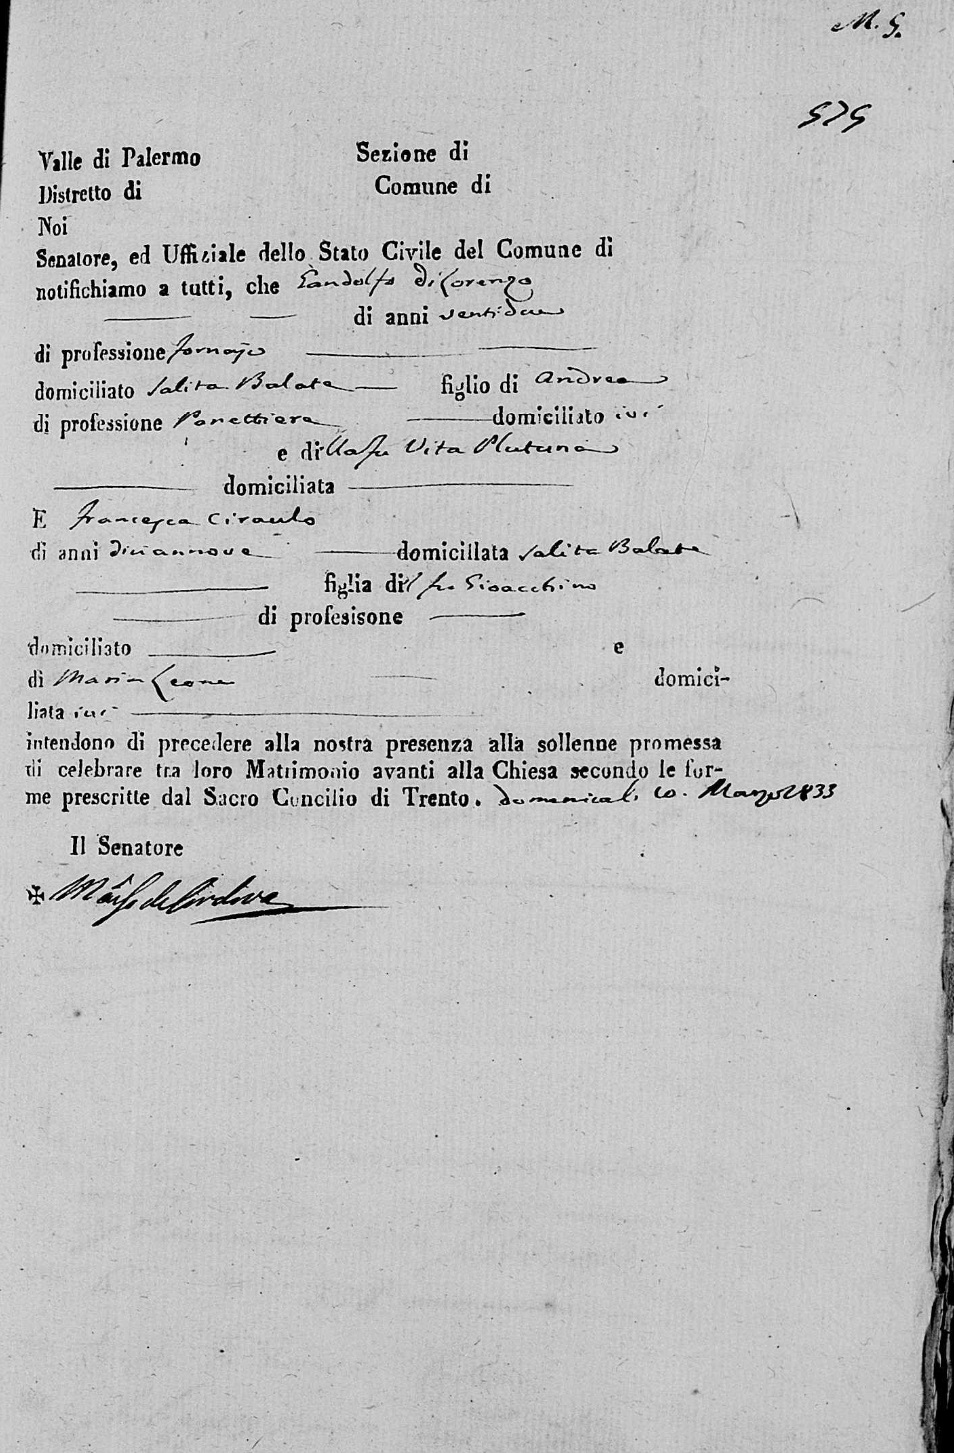 M. G.
575
Valle di Palermo Sezione di
Distretto di Comune di
Noi
Senatore, ed Uffiziale dello Stato Civile del Comune di
notifichiamo a tutti, che Gandolfo di Lorenzo
di anni ventidue
di professione fornajo
domiciliato Salita Balate figlio di Andrea
di professione Panettiere domiciliato ivi
e di lla fu Vita Plutana
domiciliata
E Francesca Ciraulo
di anni diciannove domiciliata Salita Balate
figlia di l fu Gioacchino
di profesisone
domiciliato e
di Maria Leone domici-
liata ivi
intendono di precedere alla nostra presenza alla sollenne promessa
di celebrare tra loro Matrimonio avanti alla Chiesa secondo le for-
me prescritte dal Sacro Concilio di Trento. domenica li 10. Marzo 1833
Il Senatore